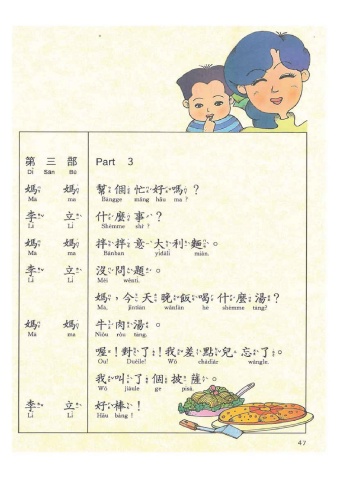 第三部 Part 3
Dì Sān Bù
媽媽 幫個忙好嗎？
Mā ma Bāngge máng hǎu ma?
李立 什麼事？
Lǐ Lì Shémme shì?
媽媽 拌拌意大利麵。
Mā ma Bànban yìdàlì miàn.
李立 沒問題。
Lǐ Lì Méi wèntí.
媽，今天晚飯喝什麼湯？
Mā, jīntiān wǎnfàn hē shémme tāng?
媽媽 牛肉湯。
Mā ma Nióu ròu tāng.
喔！對了！我差點兒忘了。
Ou! Duèile! Wǒ chàdiǎr wàngle.
我叫了個披薩。
Wǒ jiàule ge pīsà.
李立 好棒！
Lǐ Lì Hǎu bàng!
47